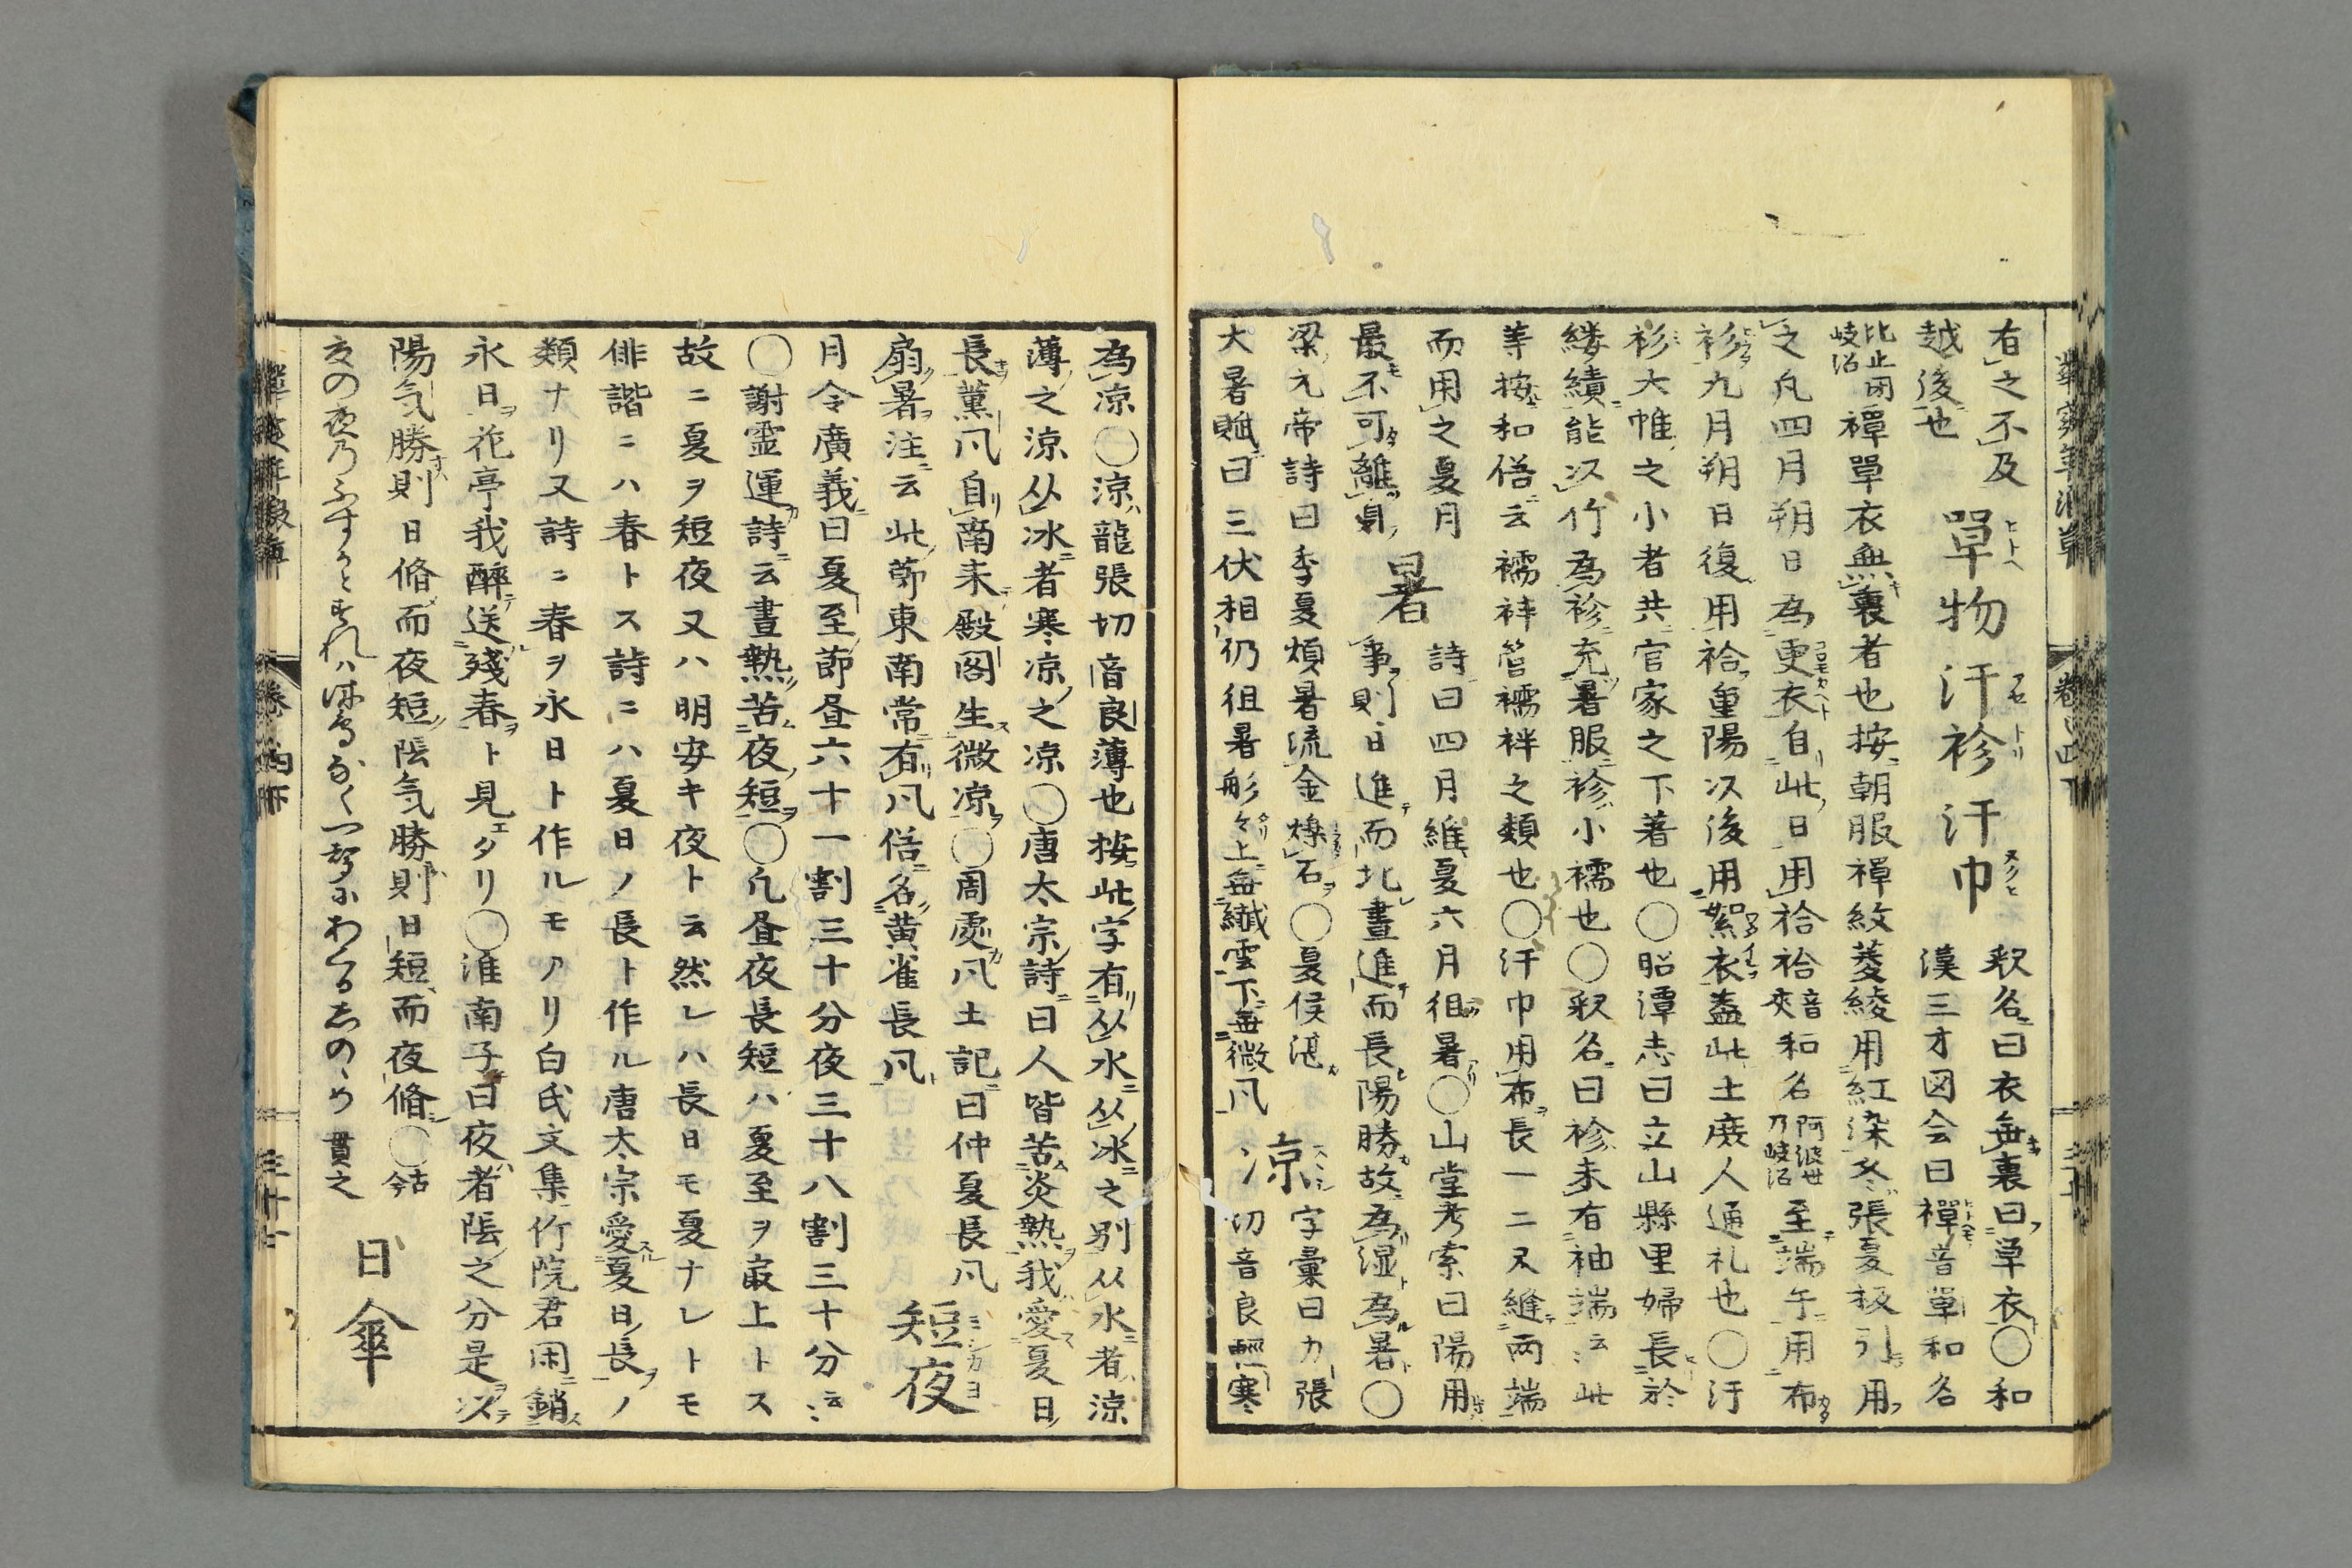 有之不及
越後也 單物 汗袗 汗巾 釈名曰衣無裏曰單衣〇和
漢三才図会曰襌音單和名
比止閉岐沼 襌單衣無裏者也按朝服襌紋菱綾用紅染冬張夏板引用
之凢四月朔日為更衣自此日用袷袷音夾和名阿波世乃岐沼至端午用布
衫九月朔日復用袷重陽次後用絮衣蓋此土庶人通礼也〇汗
衫大帷之小者共官家之下著也〇昭潭志曰立山縣里婦長於
緌績能以竹為袗充暑服袗小襦也〇釈名曰袗未有袖端云云此
等按和俗云襦袢管襦袢之類也〇汗巾用布長一二尺縫両端
而用之夏月 暑 詩曰四月維夏六月徂暑〇山堂考索曰陽用
最不可離身 事則日進而北晝進而長陽勝故為湿為暑〇
梁元帝詩曰季夏煩暑流金爍石〇夏侯湛
大暑賦曰三伏相仍徂暑彤々上無纎雲下無微凨 凉 字彙曰力張
切音良輕寒
為凉〇凉龍張切音良薄也按此字有从水从冰之別从水者涼
薄之涼从冰者寒凉之凉〇唐太宗詩曰人皆苦炎熱我愛夏日
長薫凨自南来殿閣生微凉〇周處凨土記曰仲夏長凨
扇暑注云此節東南常有凨俗名黄雀長凨 短夜
月令廣義曰夏至節昼六十一割三十分夜三十八割三十分云云
〇謝霊運詩云晝熱苦夜短〇凢昼夜長短ハ夏至ヲ最上トス
故ニ夏ヲ短夜又ハ明安キ夜ト云然レハ長日モ夏ナレトモ
俳諧ニハ春トス詩ニハ夏日ノ長ト作ル唐太宗愛夏日長ノ
類ナリ又詩ニ春ヲ永日ト作ルモノアリ白氏文集竹院君閑銷
永日花亭我醉送殘春ト見エタリ〇淮南子曰夜者陰之分是以
陽気勝則日脩而夜短陰気勝則日短而夜脩〇古今
夏の夜乃ふすかとすれハ時鳥なく一聲にわくるしのゝめ 貫之 日傘